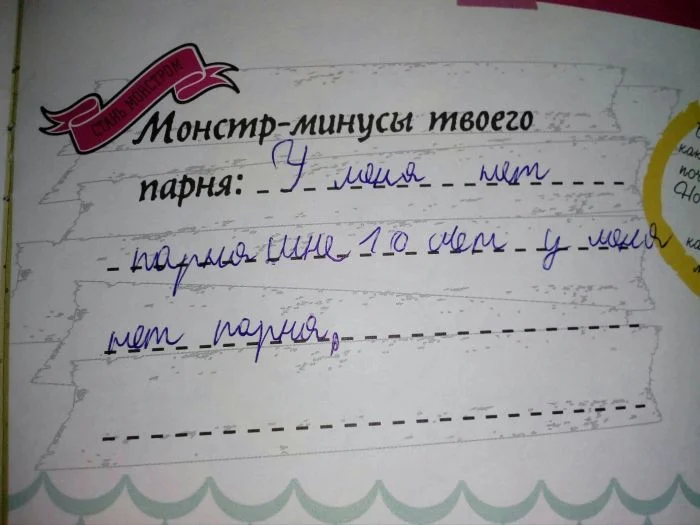 СТАНЬ МОНСТРОМ
Монстр-минусы твоего
парня: У меня нет
парня мне 10 лет у меня
нет парня,
как
поч
Но
ка